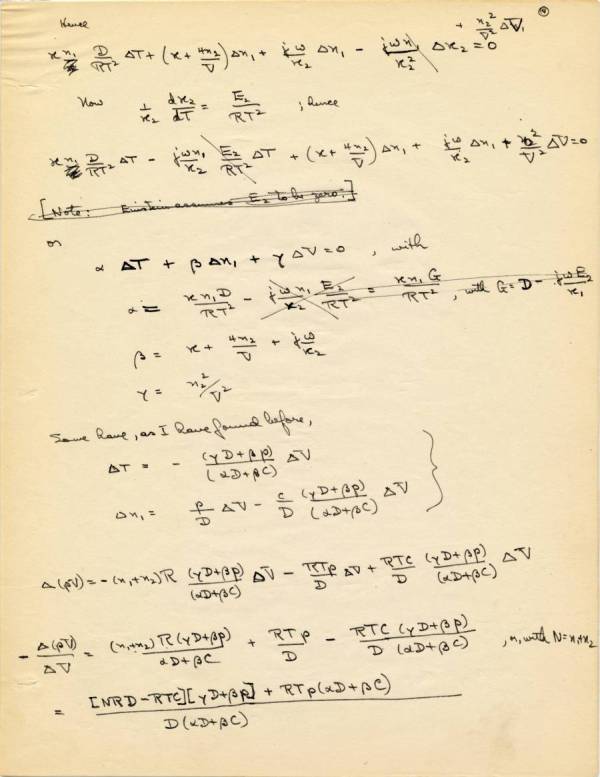 ④
Hence
κn₁ D/RT² ΔT + (κ + 4n₂/V) Δn₁ + jω/κ₂ Δn₁ − jωn₁/κ₂² Δκ₂ + n₂²/V² ΔV = 0
Now 1/κ₂ dκ₂/dT = E₂/RT² ; hence
κn₁ D/RT² ΔT − jωn₁/κ₂ E₂/RT² ΔT + (κ + 4n₂/V) Δn₁ + jω/κ₂ Δn₁ + n₂²/V² ΔV = 0
[Note: Einstein assumes E₂ to be zero.]
or
α ΔT + β Δn₁ + γ ΔV = 0 , with
α = κn₁D/RT² − jωn₁/κ₂ E₂/RT² = κn₁G/RT² , with G = D − jωE₂/κ₁
β = κ + 4n₂/V + jω/κ₂
γ = n₂²/V²
have, as I have found before,
ΔT = − (γD+βp)/(αD+βC) ΔV
Δn₁ = p/D ΔV − C/D (γD+βp)/(αD+βC) ΔV
Δ(pV) = −(n₁+n₂)R (γD+βp)/(αD+βC) ΔV − RTp/D ΔV + RTC/D (γD+βp)/(αD+βC) ΔV
− Δ(pV)/ΔV = (n₁+n₂)R(γD+βp)/αD+βC + RTp/D − RTC/D (γD+βp)/(αD+βC) , or, with N=n₁+n₂
= [NRD−RTC][γD+βp] + RTp(αD+βC) / D(αD+βC)